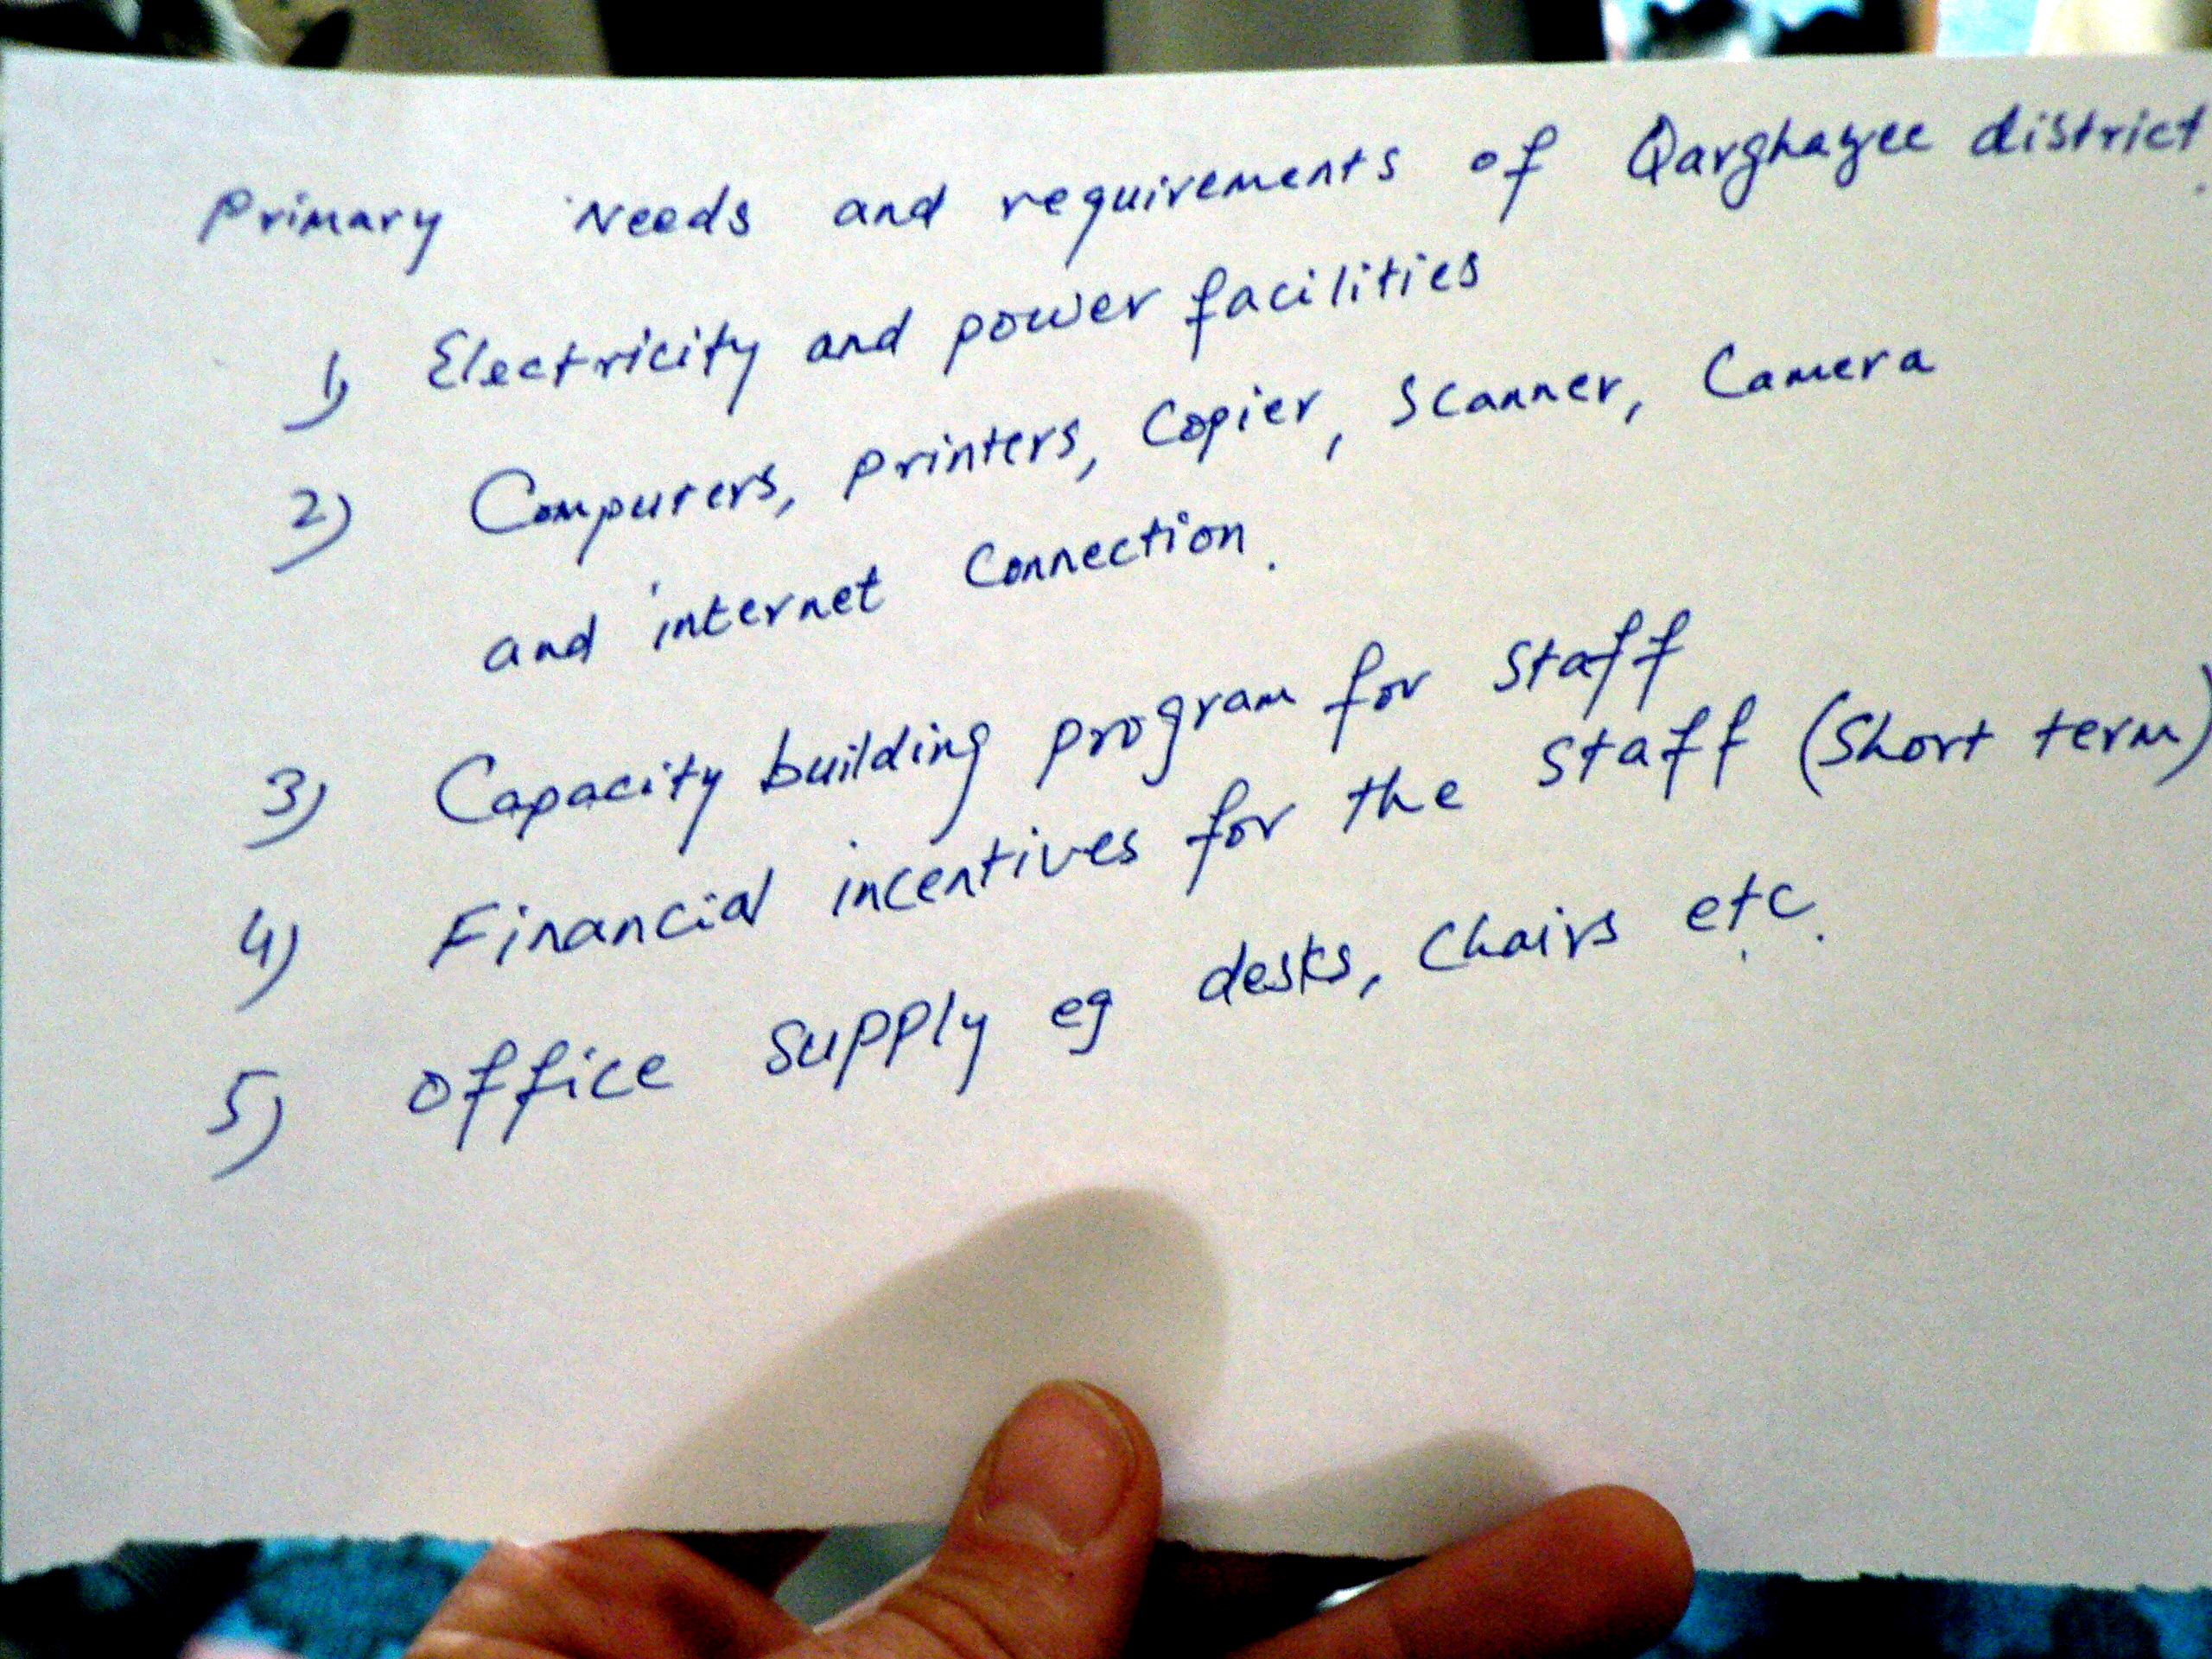 Primary Needs and requirements of Qarghayee district.
1) Electricity and power facilities
2) Computers, printers, Copier, Scanner, Camera
and internet Connection.
3) Capacity building program for staff
4) Financial incentives for the staff (Short term)
5) office supply eg desks, Chairs etc.